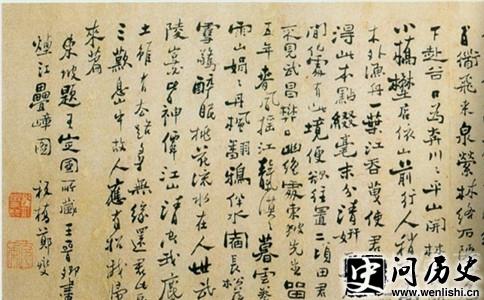 百衜飛來泉縈林絡石
下赴谷口為奔川川平山開林
小橋埜店依山前行人稍
木外漁舟一葉江吞天使君
得此本點綴毫末分清妍
間何處有此境便欲往置二頃田君
不見武昌樊口幽絕處東坡先生留
五年春風搖江天漠漠暮雲卷
雨山娟娟丹楓翻鴉伴水宿長松落
雪驚醉眠桃花流水在人世武
陵豈必皆神僊江山清空我塵
土雖有去路尋無緣還君此畫
三歎息山中故人應有招我歸
來篇
東坡題王定國所藏王晉卿畫
煙江疊嶂圖 板橋鄭燮
史问历史
www.wenlishi.cn